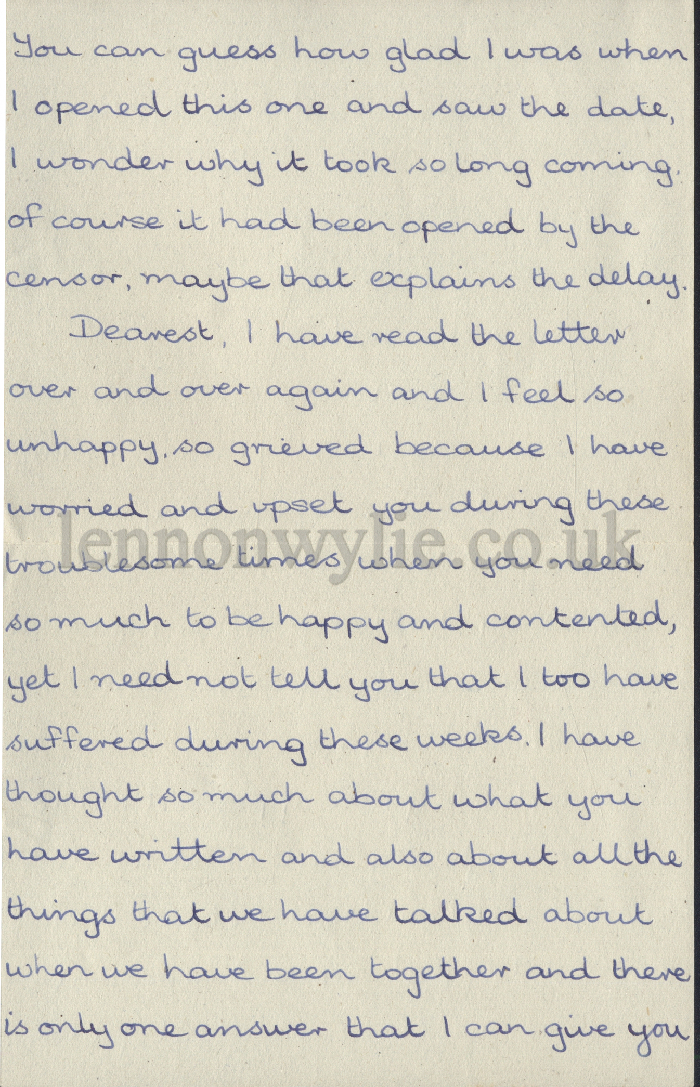 You can guess how glad I was when
I opened this one and saw the date,
I wonder why it took so long coming.
of course it had been opened by the
censor, maybe that explains the delay.
Dearest, I have read the letter
over and over again and I feel so
unhappy, so grieved because I have
worried and upset you during these
lennonwylie.co.uk
troublesome times when you need
so much to be happy and contented,
yet I need not tell you that I too have
suffered during these weeks. I have
thought so much about what you
have written and also about all the
things that we have talked about
when we have been together and there
is only one answer that I can give you